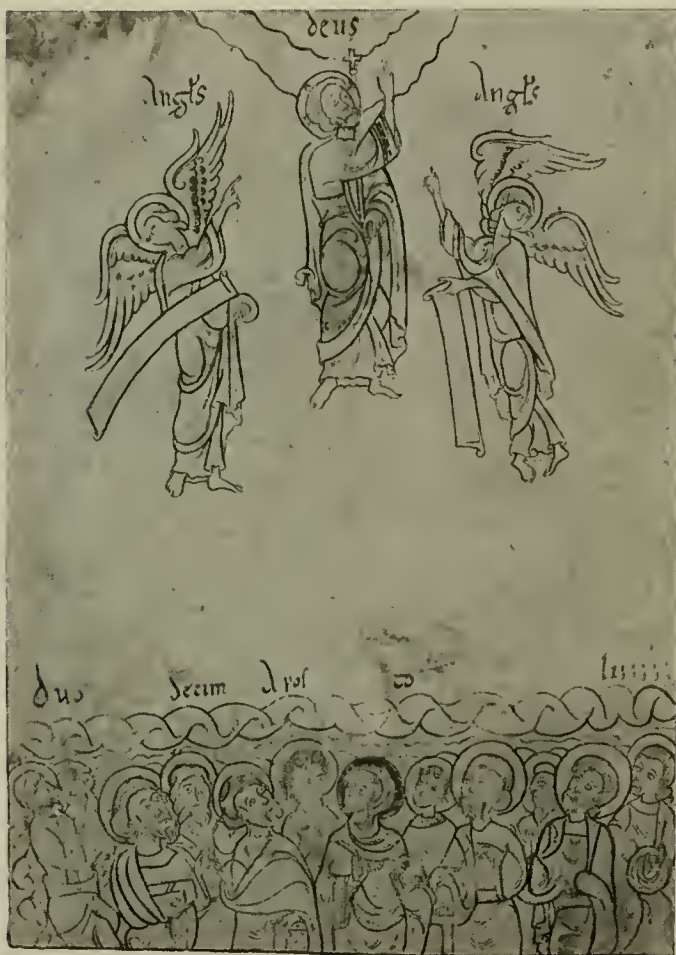 deus
Angɫs Angɫs
duo decim Apos to li